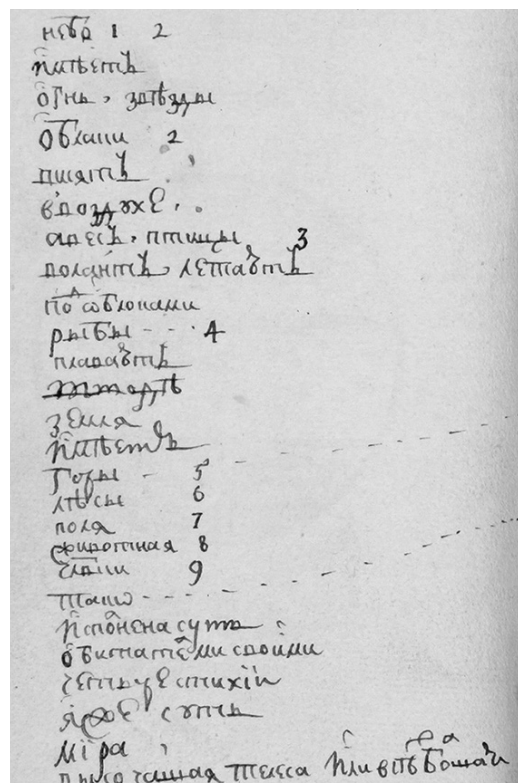 небо 1 2
имѣетъ
огнь, звѣзды
облаки 2
висятъ
в воздухе,
здесь, птицы 3
летаютъ
под облоками
рыбы - - - 4
плаваютъ
земля
имѣетъ
горы - 5
лѣсы 6
поля 7
животная 8
члвцы 9
тако - - -
исполнена суть
обитательми своими
четыре стихии
яже суть
мира
телеса